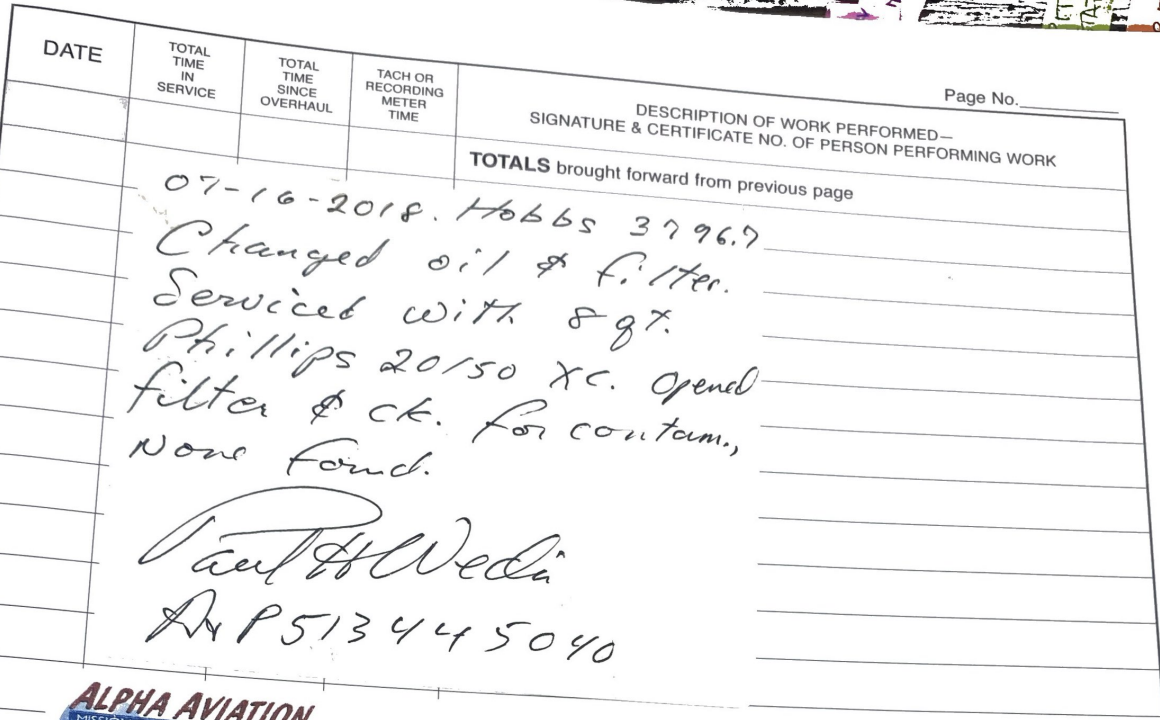 Page No.
DATE
TOTAL
TIME
IN
SERVICE
TOTAL
TIME
SINCE
OVERHAUL
TACH OR
RECORDING
METER
TIME
DESCRIPTION OF WORK PERFORMED—
SIGNATURE & CERTIFICATE NO. OF PERSON PERFORMING WORK
TOTALS brought forward from previous page
07-16-2018. Hobbs 3796.7
Changed oil & filter.
Serviced with 8 qt.
Phillips 20/50 XC. opened
filter & ck. for contam.,
None found.
Paul H
A&P 513445040
ALPHA AVIATION